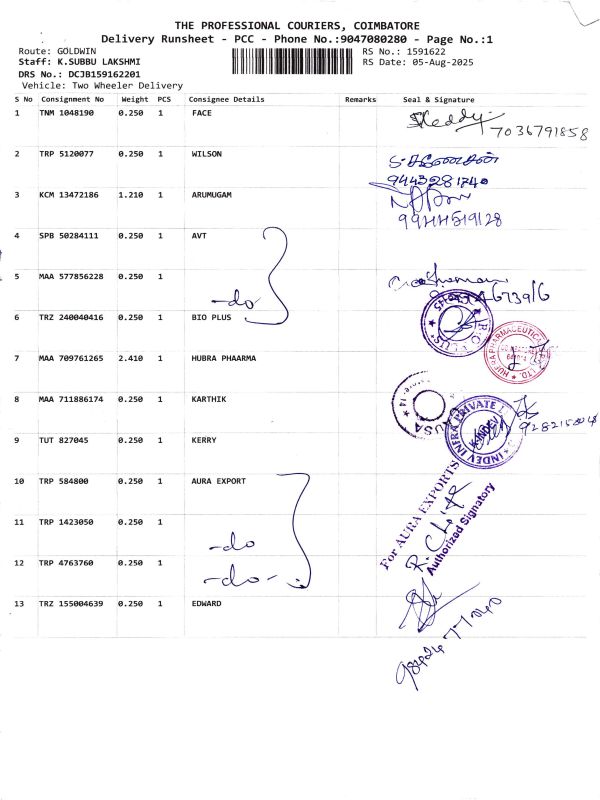 THE PROFESSIONAL COURIERS, COIMBATORE
Delivery Runsheet - PCC - Phone No.:9047080280 - Page No.:1
Route: GOLDWIN RS No.: 1591622
Staff: K.SUBBU LAKSHMI RS Date: 05-Aug-2025
DRS No.: DCJB159162201
Vehicle: Two Wheeler Delivery
S No Consignment No Weight PCS Consignee Details Remarks Seal & Signature
1 TNM 1048190 0.250 1 FACE Reddy
7036791858
2 TRP 5120077 0.250 1 WILSON
9443281740
3 KCM 13472186 1.210 1 ARUMUGAM
4 SPB 50284111 0.250 1 AVT
5 MAA 577856228 0.250 1
-do
6 TRZ 240040416 0.250 1 BIO PLUS
7 MAA 709761265 2.410 1 HUBRA PHAARMA
8 MAA 711886174 0.250 1 KARTHIK
INDEV INFRA PRIVATE
9 TUT 827045 0.250 1 KERRY
10 TRP 584800 0.250 1 AURA EXPORT
For AURA EXPORTS
Authorized Signatory
11 TRP 1423050 0.250 1
-do
12 TRP 4763760 0.250 1
-do-
13 TRZ 155004639 0.250 1 EDWARD